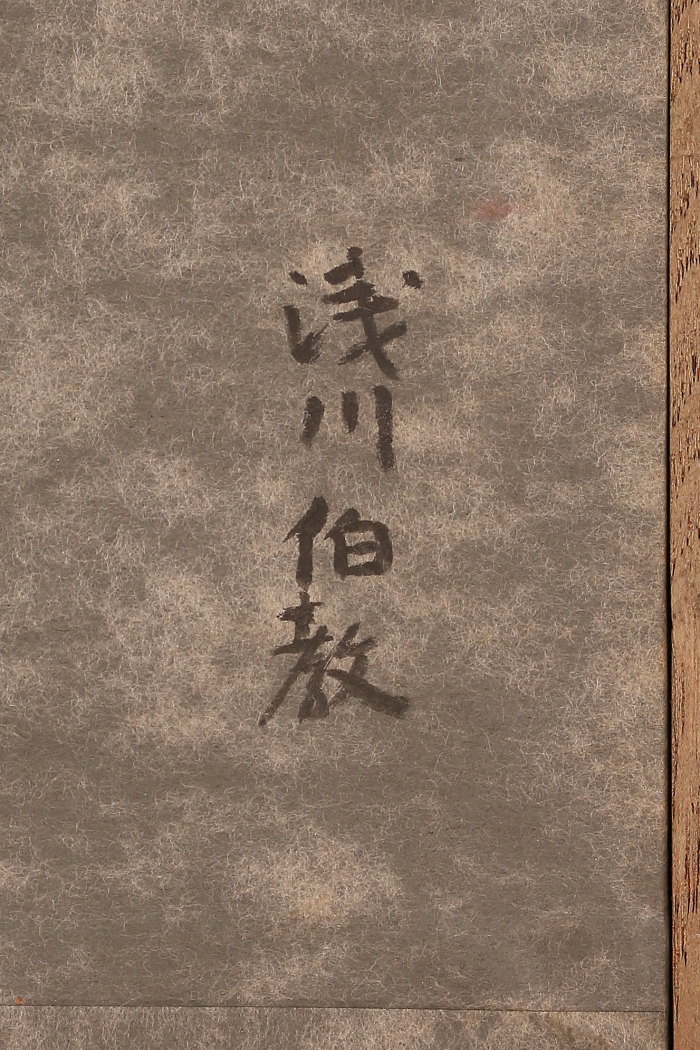 浅川伯教